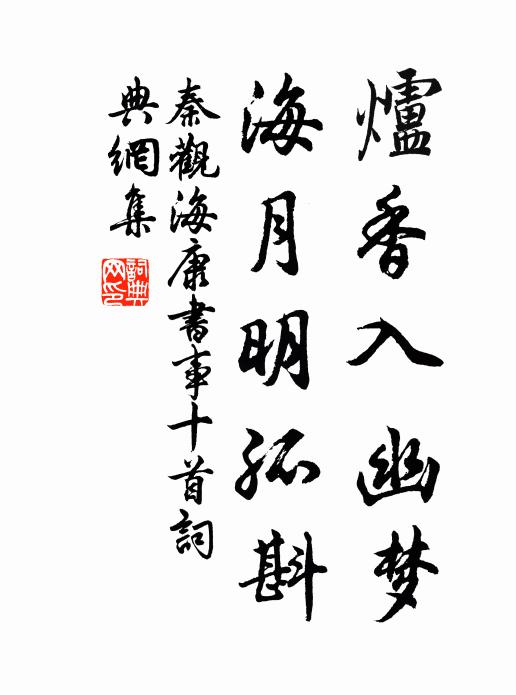 爐香入幽梦
海月明孤斟
秦觀海康書事十首詞
典網集
詞典网印